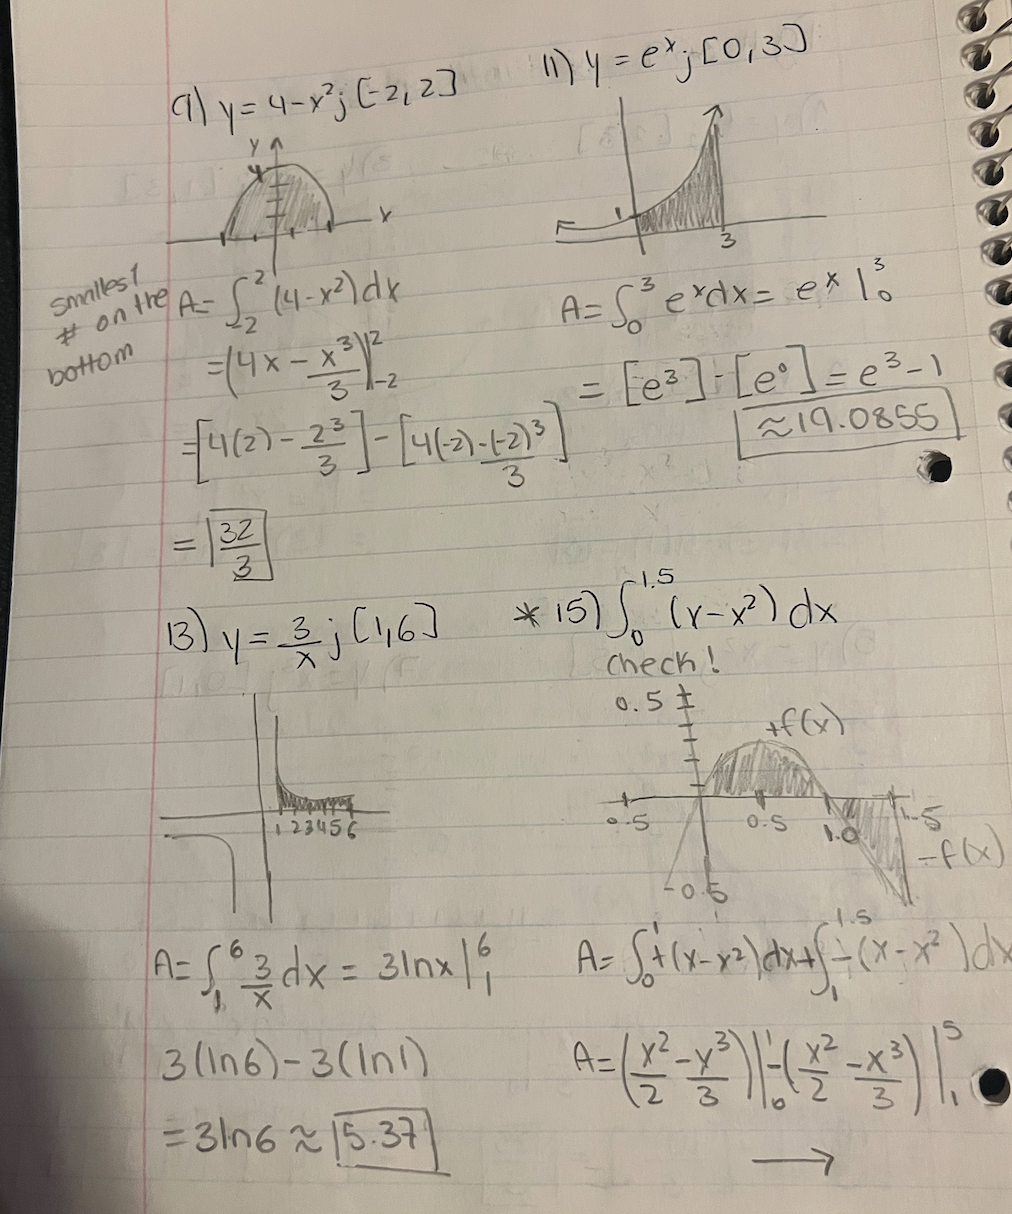 9) y = 4-x²; [-2, 2]
y
4
x
smallest
# on the
bottom
A = ∫₋₂² (4-x²)dx
= (4x - x³/3)|₋₂²
= [4(2) - 2³/3] - [4(-2) - (-2)³/3]
= 32/3
11) y = eˣ; [0, 3]
1
3
A = ∫₀³ eˣdx = eˣ |₀³
= [e³] - [e⁰] = e³-1
≈19.0855
13) y = 3/x; [1,6]
1 2 3 4 5 6
A = ∫₁⁶ 3/x dx = 3lnx|₁⁶
3(ln6) - 3(ln1)
= 3ln6 ≈ 5.37
* 15) ∫₀^1.5 (x-x²) dx
check!
0.5
+f(x)
0.5
0.5
1.0
1.5
-f(x)
-0.5
A = ∫₀¹ +(x-x²)dx + ∫₁^1.5 -(x-x²)dx
A = (x²/2 - x³/3)|₀¹ - (x²/2 - x³/3)|₁⁵
→